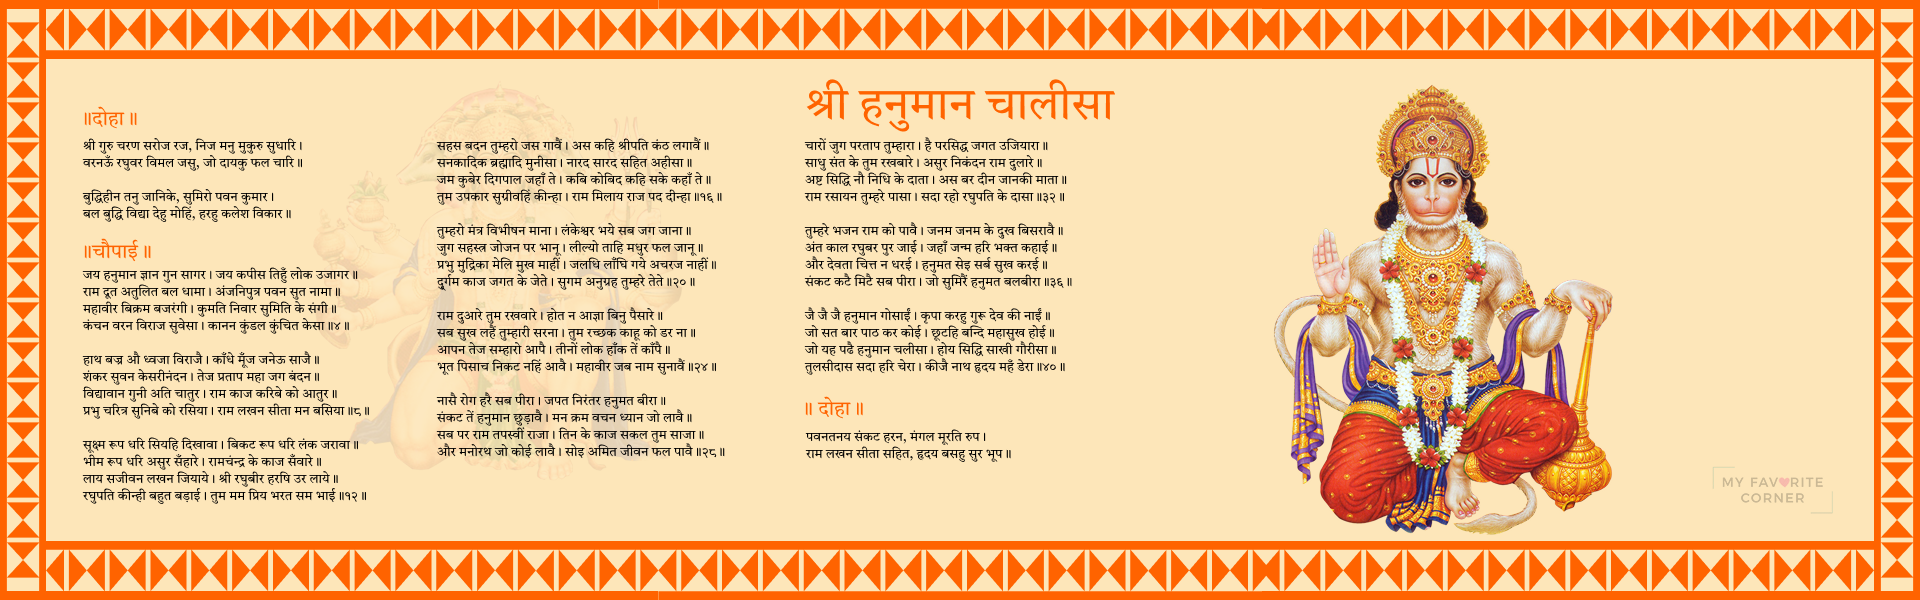 ॥दोहा॥
श्री गुरु चरण सरोज रज, निज मनु मुकुरु सुधारि।
वरनऊँ रघुवर विमल जसु, जो दायकु फल चारि॥
बुद्धिहीन तनु जानिके, सुमिरो पवन कुमार।
बल बुद्धि विद्या देहु मोहिं, हरहु कलेश विकार॥
॥चौपाई॥
जय हनुमान ज्ञान गुन सागर। जय कपीस तिहुँ लोक उजागर॥
राम दूत अतुलित बल धामा। अंजनिपुत्र पवन सुत नामा॥
महावीर बिक्रम बजरंगी। कुमति निवार सुमिति के संगी॥
कंचन वरन विराज सुवेसा। कानन कुंडल कुंचित केसा॥४॥
हाथ बज्र औ ध्वजा विराजै। काँधे मूँज जनेऊ साजै॥
शंकर सुवन केसरीनंदन। तेज प्रताप महा जग बंदन॥
विद्यावान गुनी अति चातुर। राम काज करिबे को आतुर॥
प्रभु चरित्र सुनिबे को रसिया। राम लखन सीता मन बसिया॥८॥
सूक्ष्म रूप धरि सियहि दिखावा। बिकट रूप धरि लंक जरावा॥
भीम रूप धरि असुर सँहारे। रामचंन्द्र के काज सँवारे॥
लाय सजीवन लखन जियाये। श्री रघुबीर हरषि उर लाये॥
रघुपति कीन्ही बहुत बड़ाई। तुम मम प्रिय भरत सम भाई॥१२॥
सहस बदन तुम्हरो जस गावैं। अस कहि श्रीपति कंठ लगावैं॥
सनकादिक ब्रह्मादि मुनीसा। नारद सारद सहित अहीसा॥
जम कुबेर दिगपाल जहाँ ते। कबि कोबिद कहि सके कहाँ ते॥
तुम उपकार सुग्रीवहिं कीन्हा। राम मिलाय राज पद दीन्हा॥१६॥
तुम्हरो मंत्र विभीषन माना। लंकेश्वर भये सब जग जाना॥
जुग सहस्त्र जोजन पर भानू। लील्यो ताहि मधुर फल जानू॥
प्रभु मुद्रिका मेलि मुख माहीं। जलधि लाँघि गये अचरज नाहीं॥
दुर्गम काज जगत के जेते। सुगम अनुग्रह तुम्हरे तेते॥२०॥
राम दुआरे तुम रखवारे। होत न आज्ञा बिनु पैसारे॥
सब सुख लहैं तुम्हारी सरना। तुम रच्छक काहू को डर ना॥
आपन तेज सम्हारो आपै। तीनों लोक हाँक तें काँपै॥
भूत पिसाच निकट नहिं आवै। महावीर जब नाम सुनावैं॥२४॥
नासै रोग हरै सब पीरा। जपत निरंतर हनुमत बीरा॥
संकट तें हनुमान छुड़ावै। मन क्रम वचन ध्यान जो लावै॥
सब पर राम तपस्वीं राजा। तिन के काज सकल तुम साजा॥
और मनोरथ जो कोई लावै। सोइ अमित जीवन फल पावै॥२८॥
श्री हनुमान चालीसा
चारों जुग परताप तुम्हारा। है परसिद्ध जगत उजियारा॥
साधु संत के तुम रखबारे। असुर निकंदन राम दुलारे॥
अष्ट सिद्धि नौ निधि के दाता। अस बर दीन जानकी माता॥
राम रसायन तुम्हरे पासा। सदा रहो रघुपति के दासा॥३२॥
तुम्हरे भजन राम को पावै। जनम जनम के दुख बिसरावै॥
अंत काल रघुबर पुर जाई। जहाँ जन्म हरि भक्त कहाई॥
और देवता चित्त न धरई। हनुमत सेइ सर्ब सुख करई॥
संकट कटै मिटै सब पीरा। जो सुमिरै हनुमत बलबीरा॥३६॥
जै जै जै हनुमान गोसाईं। कृपा करहु गुरू देव की नाईं॥
जो सत बार पाठ कर कोई। छूटहि बन्दि महासुख होई॥
जो यह पढै हनुमान चलीसा। होय सिद्धि साखी गौरीसा॥
तुलसीदास सदा हरि चेरा। कीजै नाथ हृदय महँ डेरा॥४०॥
॥ दोहा॥
पवनतनय संकट हरन, मंगल मूरति रुप।
राम लखन सीता सहित, हृदय बसहु सुर भूप॥
MY FAVORITE
CORNER